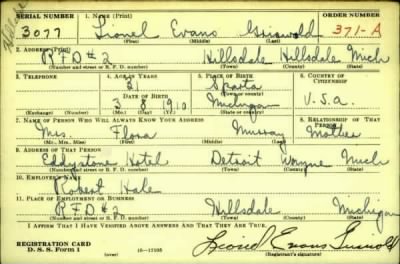 SERIAL NUMBER 1. NAME (Print) ORDER NUMBER
3077 Lionel Evans Griswold 371-A
(First) (Middle) (Last)
2. ADDRESS (Print)
RFD #2 Hillsdale Hillsdale Mich
(Number and street or R. F. D. number) (Town) (County) (State)
3. TELEPHONE 4. AGE IN YEARS 5. PLACE OF BIRTH 6. COUNTRY OF CITIZENSHIP
31 Sparta
DATE OF BIRTH (Town or county)
3 8 1910 Michigan U.S.a.
(Exchange) (Number) (Mo.) (Day) (Yr.) (State or country)
7. NAME OF PERSON WHO WILL ALWAYS KNOW YOUR ADDRESS 8. RELATIONSHIP OF THAT PERSON
Mrs. Flora Murray Mother
(Mr., Mrs., Miss) (First) (Middle) (Last)
9. ADDRESS OF THAT PERSON
Eddystone Hotel Detroit Wayne Mich
(Number and street or R. F. D. number) (Town) (County) (State)
10. EMPLOYER'S NAME
Robert Hale
11. PLACE OF EMPLOYMENT OR BUSINESS
RFD #2 Hillsdale Michigan
(Number and street or R. F. D. number) (Town) (County) (State)
I AFFIRM THAT I HAVE VERIFIED ABOVE ANSWERS AND THAT THEY ARE TRUE.
REGISTRATION CARD
D. S. S. Form 1 16-17105 Lionel Evans Griswold
(over) (Registrant's signature)